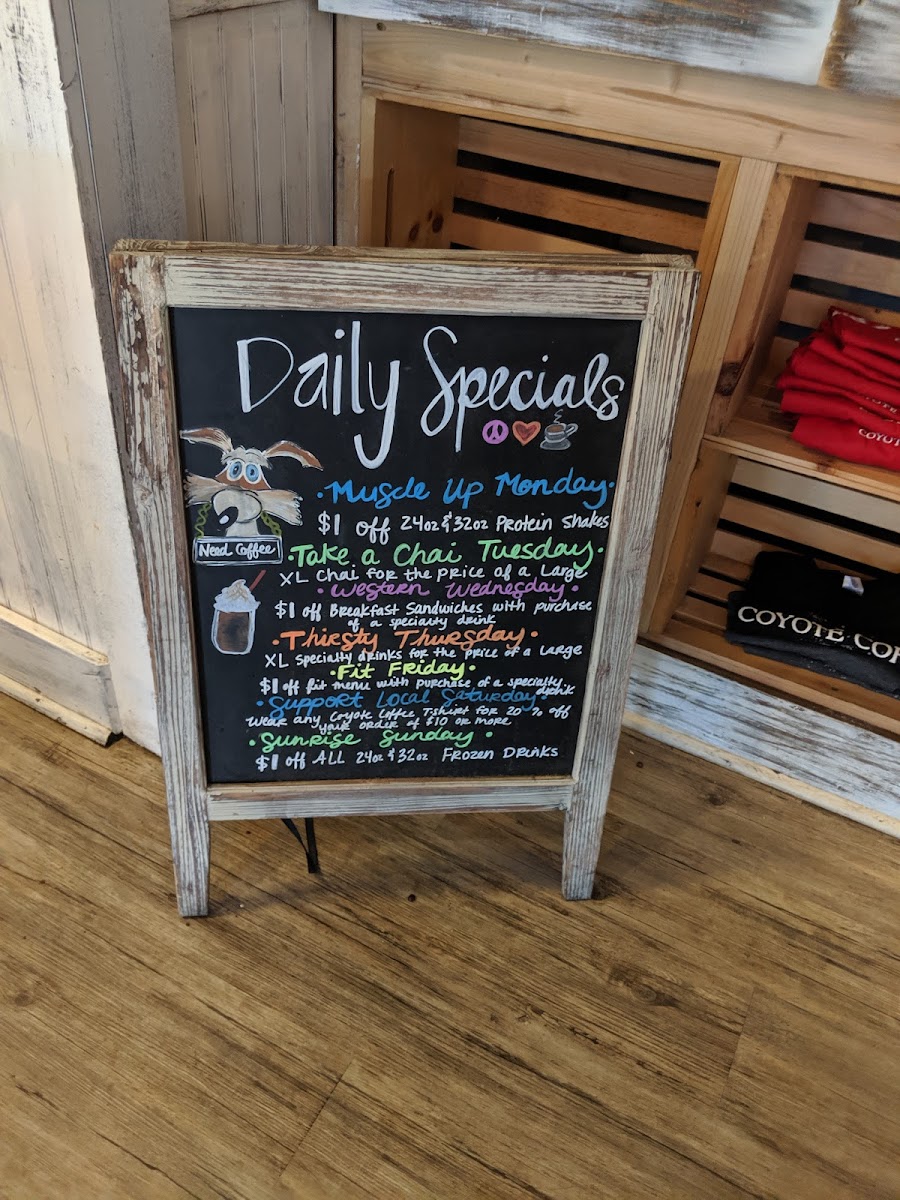 Daily Specials
Need Coffee
• Muscle Up Monday •
$1 off 24oz & 32oz Protein Shakes
• Take a Chai Tuesday •
XL Chai for the price of a Large
• Western Wednesday •
$1 off Breakfast Sandwiches with purchase
of a specialty drink
• Thirsty Thursday •
XL Specialty drinks for the price of a Large
• Fit Friday •
$1 off fit menu with purchase of a specialty
drink
• Support Local Saturday •
Wear any Coyote Coffee T-shirt for 20% off
your order of $10 or more
• Sunrise Sunday •
$1 off ALL 24oz & 32oz Frozen Drinks
COYOTE
COYOTE COF